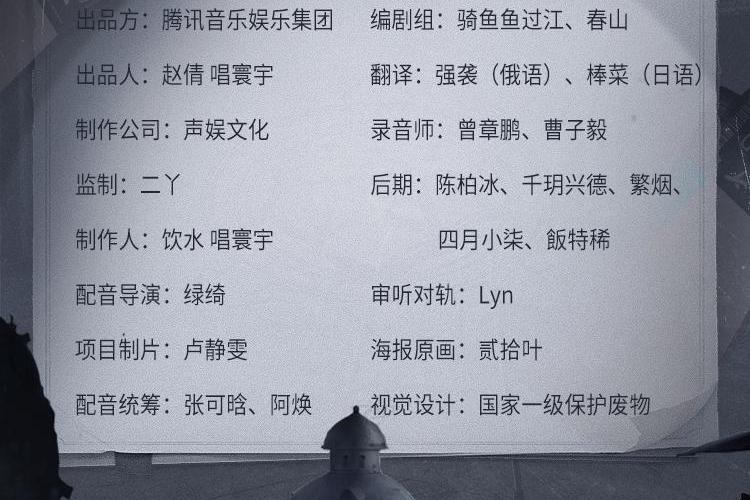 出品方：腾讯音乐娱乐集团
出品人：赵倩 唱寰宇
制作公司：声娱文化
监制：二丫
制作人：饮水 唱寰宇
配音导演：绿绮
项目制片：卢静雯
配音统筹：张可晗、阿焕
编剧组：骑鱼鱼过江、春山
翻译：强袭（俄语）、棒菜（日语）
录音师：曾章鹏、曹子毅
后期：陈柏冰、千玥兴德、繁烟、
四月小柒、飯特稀
审听对轨：Lyn
海报原画：贰拾叶
视觉设计：国家一级保护废物